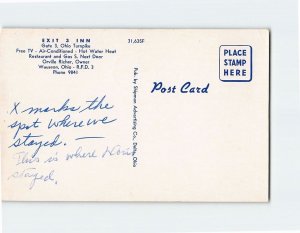 EXIT 3 INN
Gate 3, Ohio Turnpike
Free TV - Air-Conditioned - Hot Water Heat
Restaurant and Gas S, Next Door
Orville Richer, Owner
Wauseon, Ohio - R.F.D. 3
Phone 9841
31,635F
PLACE
STAMP
HERE
Post Card
Pub. by Shipman Advertising Co., Delta, Ohio
X marks the
spot where we
stayed. —
This is where
stayed.